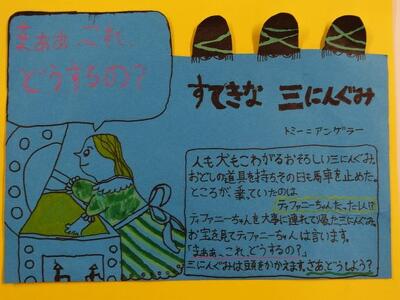 まぁぁぁ これ、
どうするの？
すてきな 三にんぐみ
トミー＝アンゲラー
人も犬もこわがるおそろしい三にんぐみ。
おどしの道具を持ち、その日も馬車を止めた。
ところが、乗っていたのは
ティファニーちゃんた、た、1人！！
ティファニーちゃんを大事に連れて帰った三にんぐみ。
お宝を見てティファニーちゃんは言います。
「まぁぁぁ、これ、どうするの？」
三にんぐみは頭をかかえます。さあどうしよう？